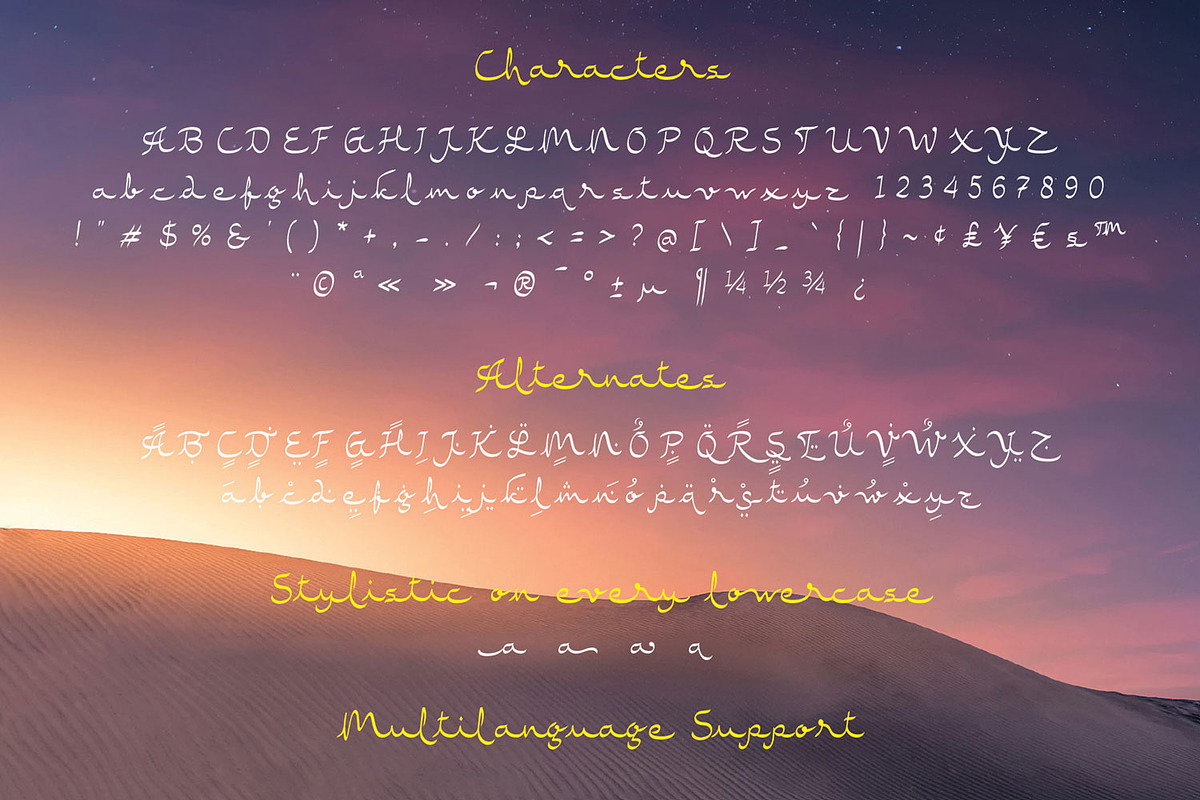 Characters
A B C D E F G H I J K L M N O P Q R S T U V W X Y Z
a b c d e f g h i j k l m o n p q r s t u v w x y z 1 2 3 4 5 6 7 8 9 0
! " # $ % & ' ( ) * + , - . / : ; < = > ? @ [ \ ] _ ` { | } ~ ¢ £ ¥ € s ™
¨ © ª « » ¬ ® ¯ ° ± µ ¶ ¼ ½ ¾ ¿
Alternates
Stylistic on every lowercase
a a a a
Multilanguage Support